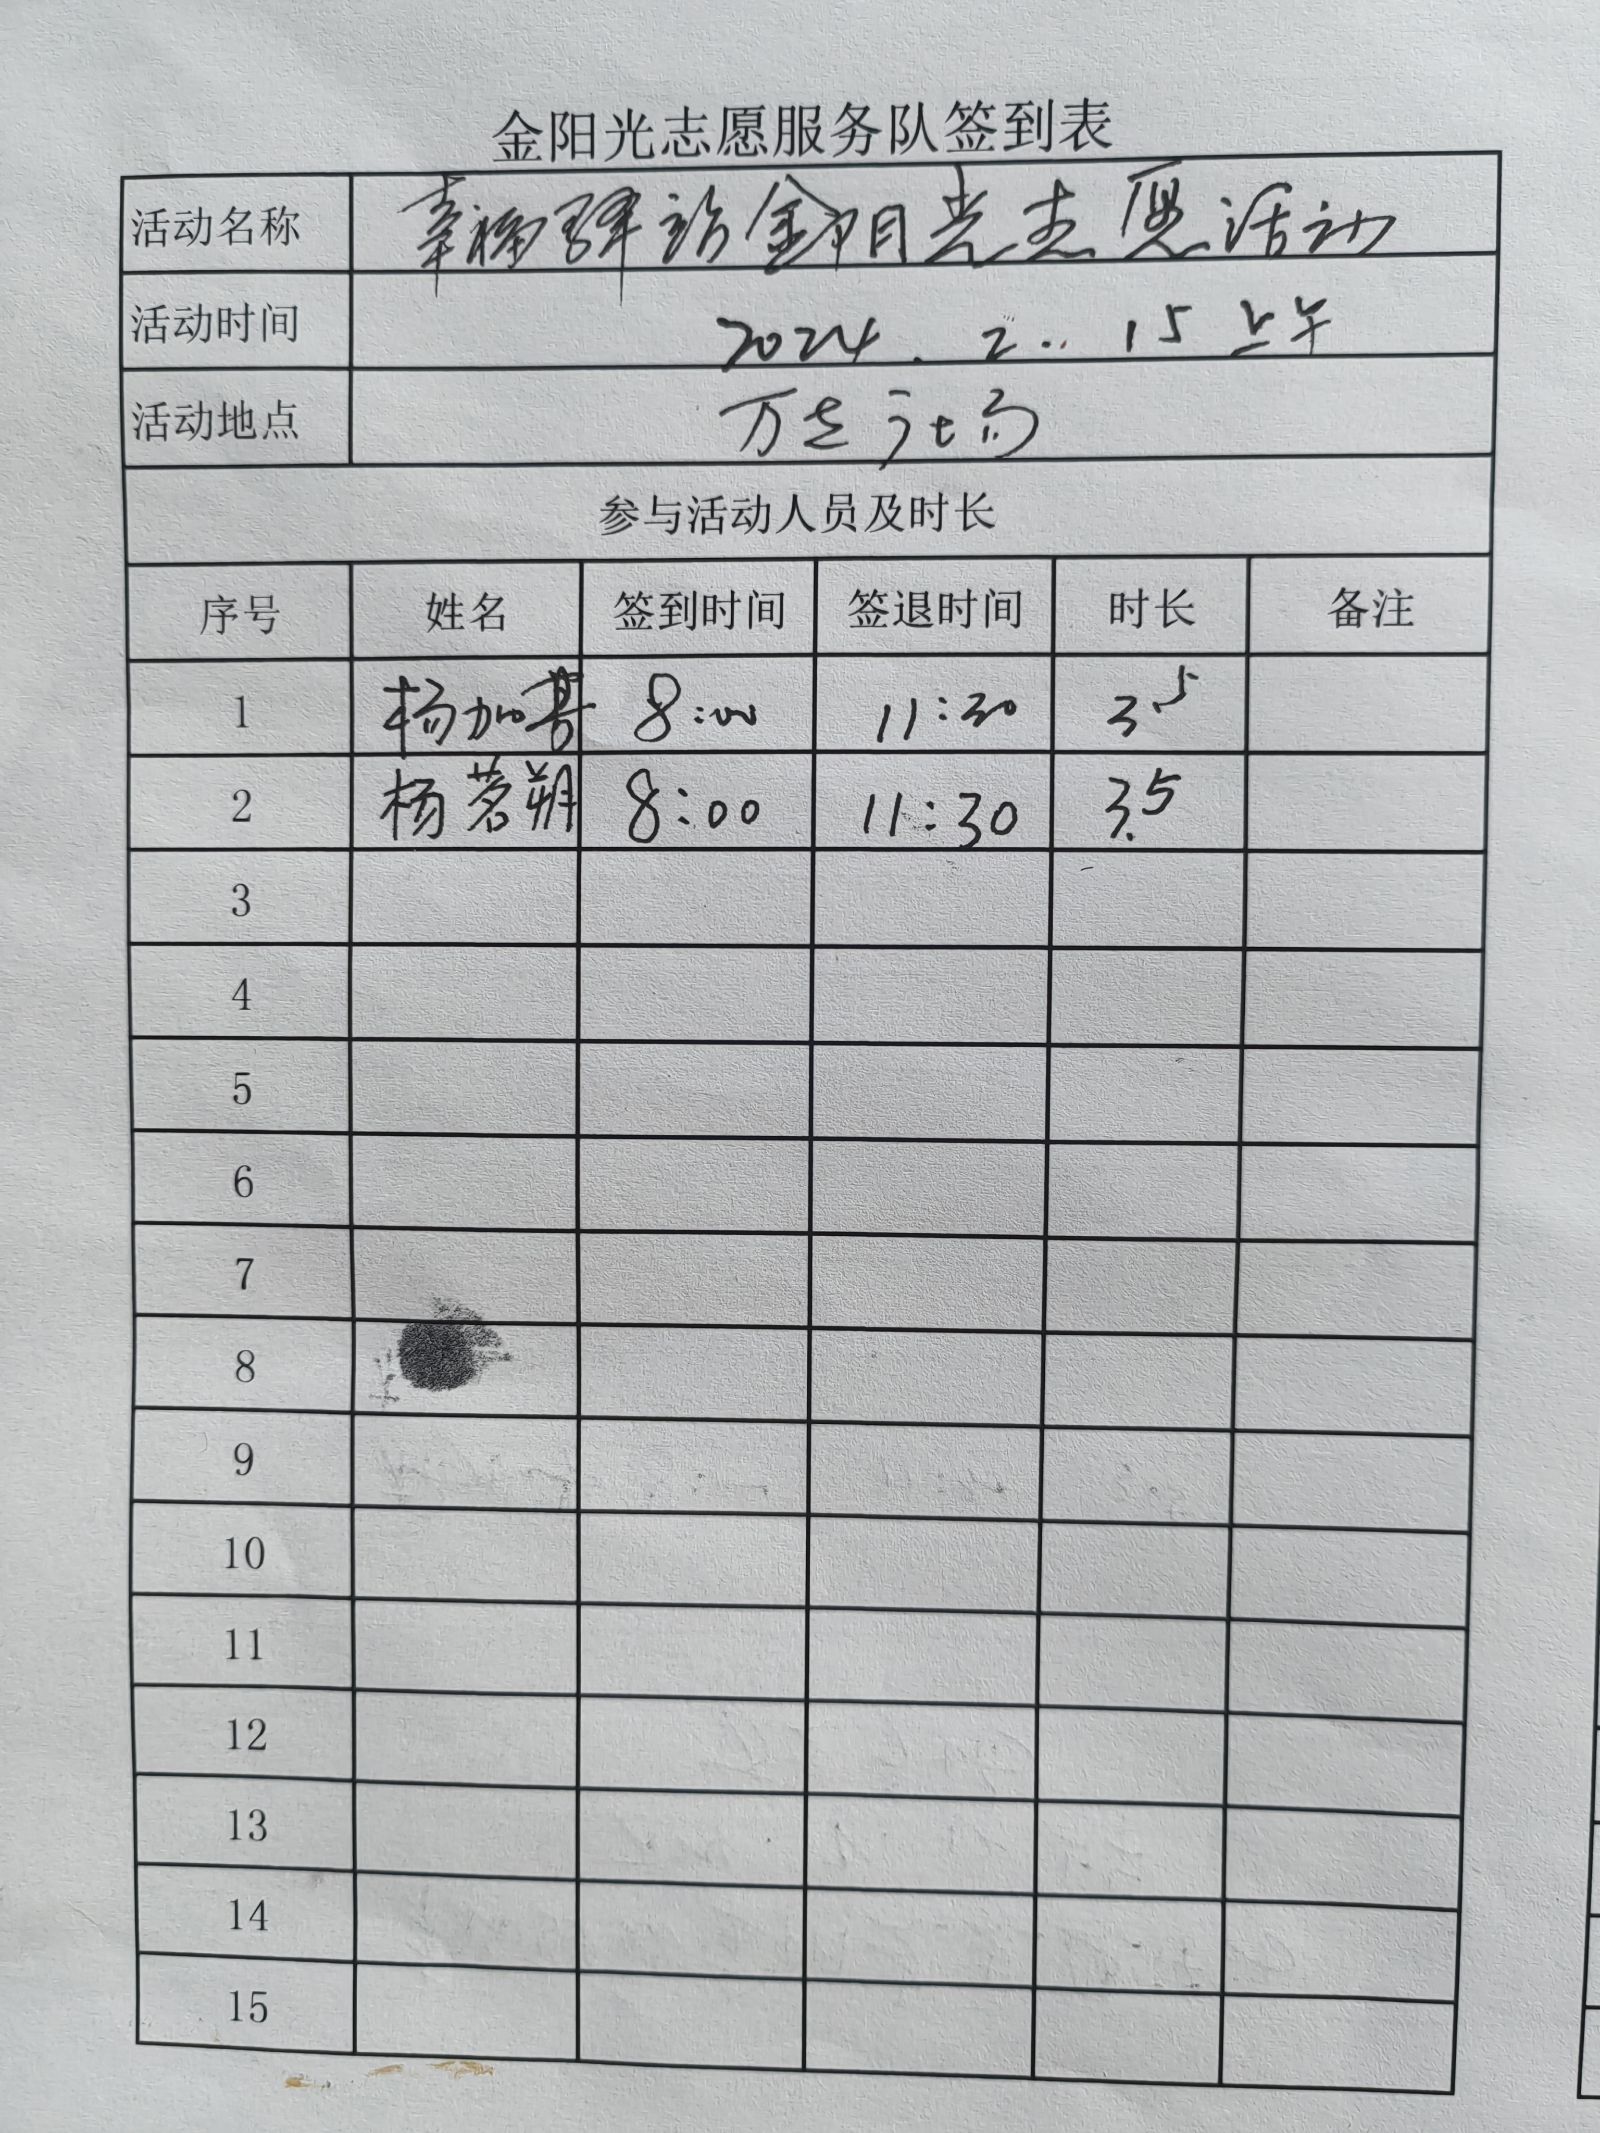 金阳光志愿服务队签到表
活动名称 幸福驿站金阳光志愿活动
活动时间 2024.2.15上午
活动地点 万达广场
参与活动人员及时长
序号 姓名 签到时间 签退时间 时长 备注
1 杨加 8:00 11:30 3.5
2 杨茗朔 8:00 11:30 3.5
3
4
5
6
7
8
9
10
11
12
13
14
15